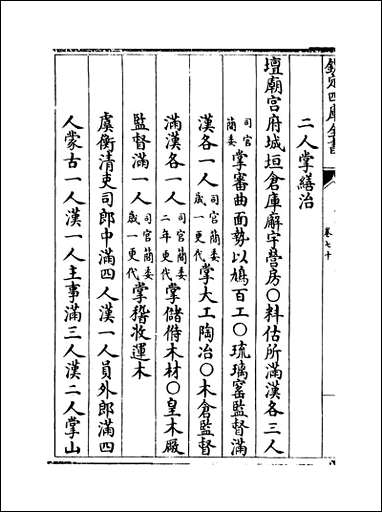 欽定四庫全書
卷七十
二人掌繕治
壇廟宮府城垣倉庫廨宇營房○料估所滿漢各三人
司官簡委掌審曲面勢以鳩百工○琉璃窰監督滿
漢各一人司官簡委歲一更代掌大工陶冶○木倉監督
滿漢各一人司官簡委二年更代掌儲偫木材○皇木厰
監督滿一人司官簡委歲一更代掌稽收運木
虞衡清吏司郎中滿四人漢一人員外郎滿四
人蒙古一人漢一人主事滿三人漢二人掌山